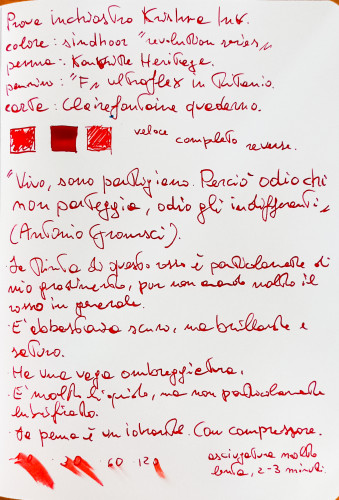 Prova inchiostro Krishna Ink.
colore: sindhoor "revolution series"
penna: Kanwrite Heritage.
pennino: "F" ultraflex in titanio.
carta: Clairefontaine quaderno.
veloce completo reverse.
"Vivo, sono partigiano. Perciò odio chi
non parteggia, odio gli indifferenti"
(Antonio Gramsci).
La tinta di questo rosso è particolarmente di
mio gradimento, pur non amando molto il
rosso in generale.
· È abbastanza scuro, ma brillante e
saturo.
Ha una vaga ombreggiatura.
· È molto liquido, ma non particolarmente
lubrificato.
· La penna è un idrante. Con compressore.
30 60 120
asciugatura molto
lenta, 2-3 minuti.